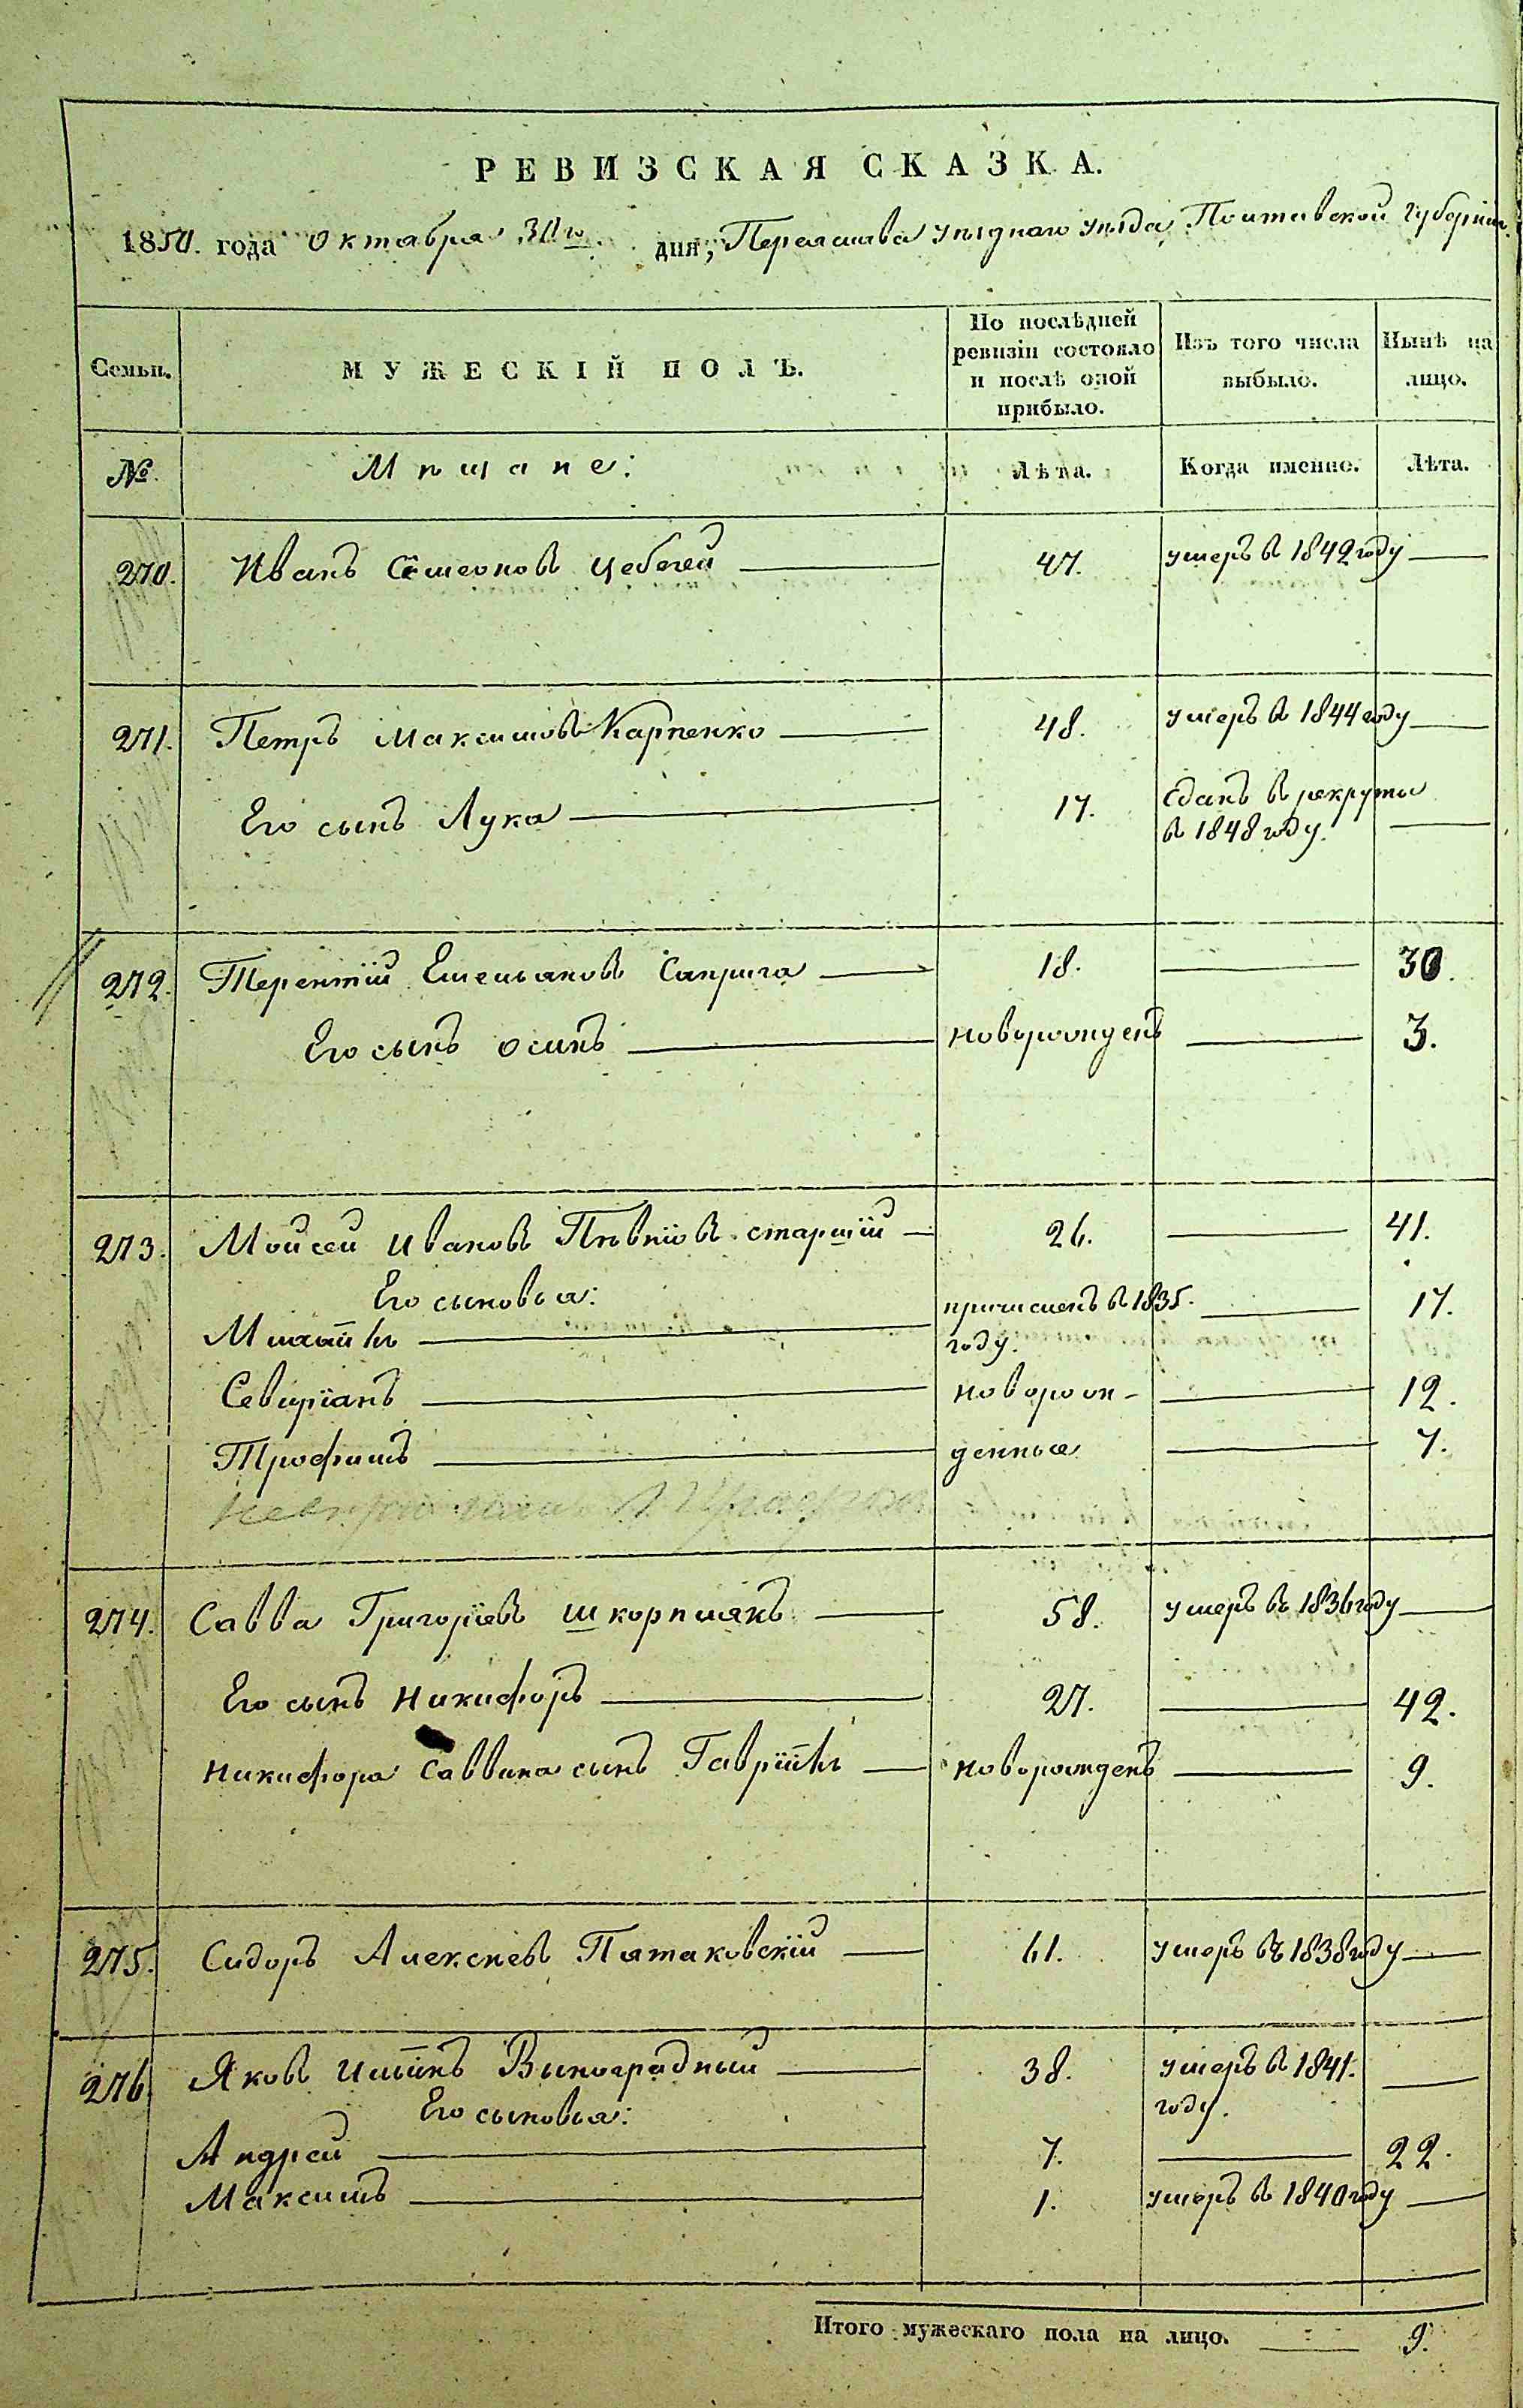 РЕВИЗСКАЯ СКАЗКА.
1850. года Октября 30го дня, Переяслава уѣзднаго уѣзда Полтавской губерніи.
Семьи. МУЖЕСКІЙ ПОЛЪ. По послѣдней ревизіи состояло и послѣ оной прибыло. Изъ того числа выбыло. Нынѣ на лицо.
№. Мѣщане: Лѣта. Когда именно. Лѣта.
270. Иванъ Семеоновъ Цебегей 47. умеръ въ 1842 году
271. Петръ Максимовъ Карпенко 48. умеръ въ 1844 году
Его сынъ Лука 17. Сданъ въ рекруты
въ 1848 году.
272. Терентій Емельяновъ Саприга 18. 30.
Его сынъ Осипъ новорожденъ 3.
273. Мойсей Ивановъ Пѣвнѣвъ старшій 26. 41.
Его сыновья:
Михаилъ причисленъ въ 1835. 17.
году.
Севиріанъ новорож- 12.
Трофимъ денные 7.
274. Савва Григоріевъ Шкорпилякъ 58. умеръ въ 1836 году
Его сынъ Никифоръ 27. 42.
Никифора Саввина сынъ Гавріилъ новорожденъ 9.
275. Сидоръ Алексѣевъ Пятаковскій 61. умеръ въ 1838 году
276. Яковъ Ильинъ Виноградный 38. умеръ въ 1841.
Его сыновья: году.
Андрей 7. 22.
Максимъ 1. умеръ въ 1840 году
Итого мужескаго пола на лицо. 9.